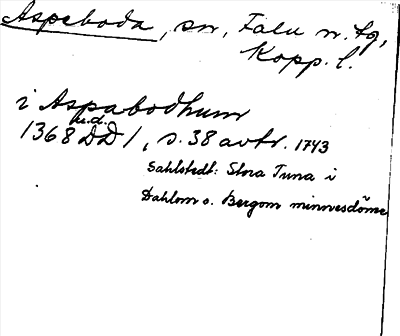 Aspeboda, sn, Falu n. tg,
Kopp. l.
i Aspabodhum
u.d.
1368 DD 1, s. 38 avtr. 1743
Sahlstedt: Stora Tuna i
Dahlom o. Bergom minnesdöme